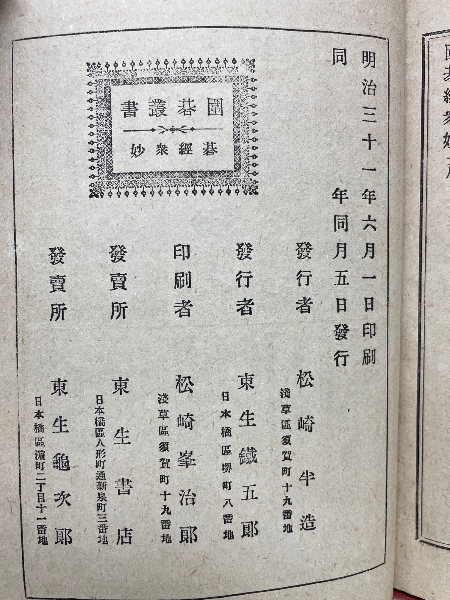 明治三十一年六月一日印刷
同　　年同月五日發行
圍碁叢書
碁經衆妙
發行者　松崎半造
淺草區須賀町十九番地
發行者　東生鐵五郎
日本橋區堺町八番地
印刷者　松崎峯治郎
淺草區須賀町十九番地
發賣所　東生書店
日本橋區人形町通新泉町三番地
發賣所　東生龜次郎
日本橋區濵町二丁目十一番地